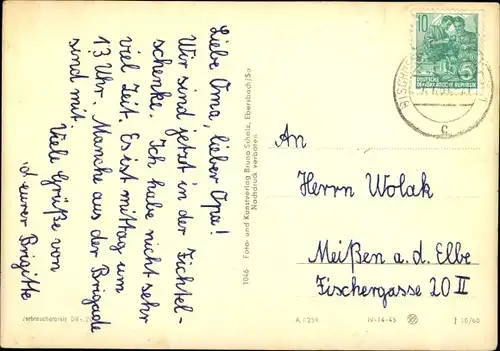 Liebe Oma, lieber Opa!
Wir sind jetzt in der Fichtel-
schenke. Ich habe nicht sehr
viel Zeit. Es ist mittag um
13 Uhr. Manche aus der Brigade
sind mit.
Viele Grüße von
eurer Brigitte
1046 Foto- und Kunstverlag Bruno Scholz, Ebersbach/Sa.
Nachdruck verboten
Verbraucherpreis DM
10
DEUTSCHE
DEMOKRATISCHE REPUBLIK
An
Herrn Wolak
Meißen a. d. Elbe
Fischergasse 20 II
IV-14-45
10/60